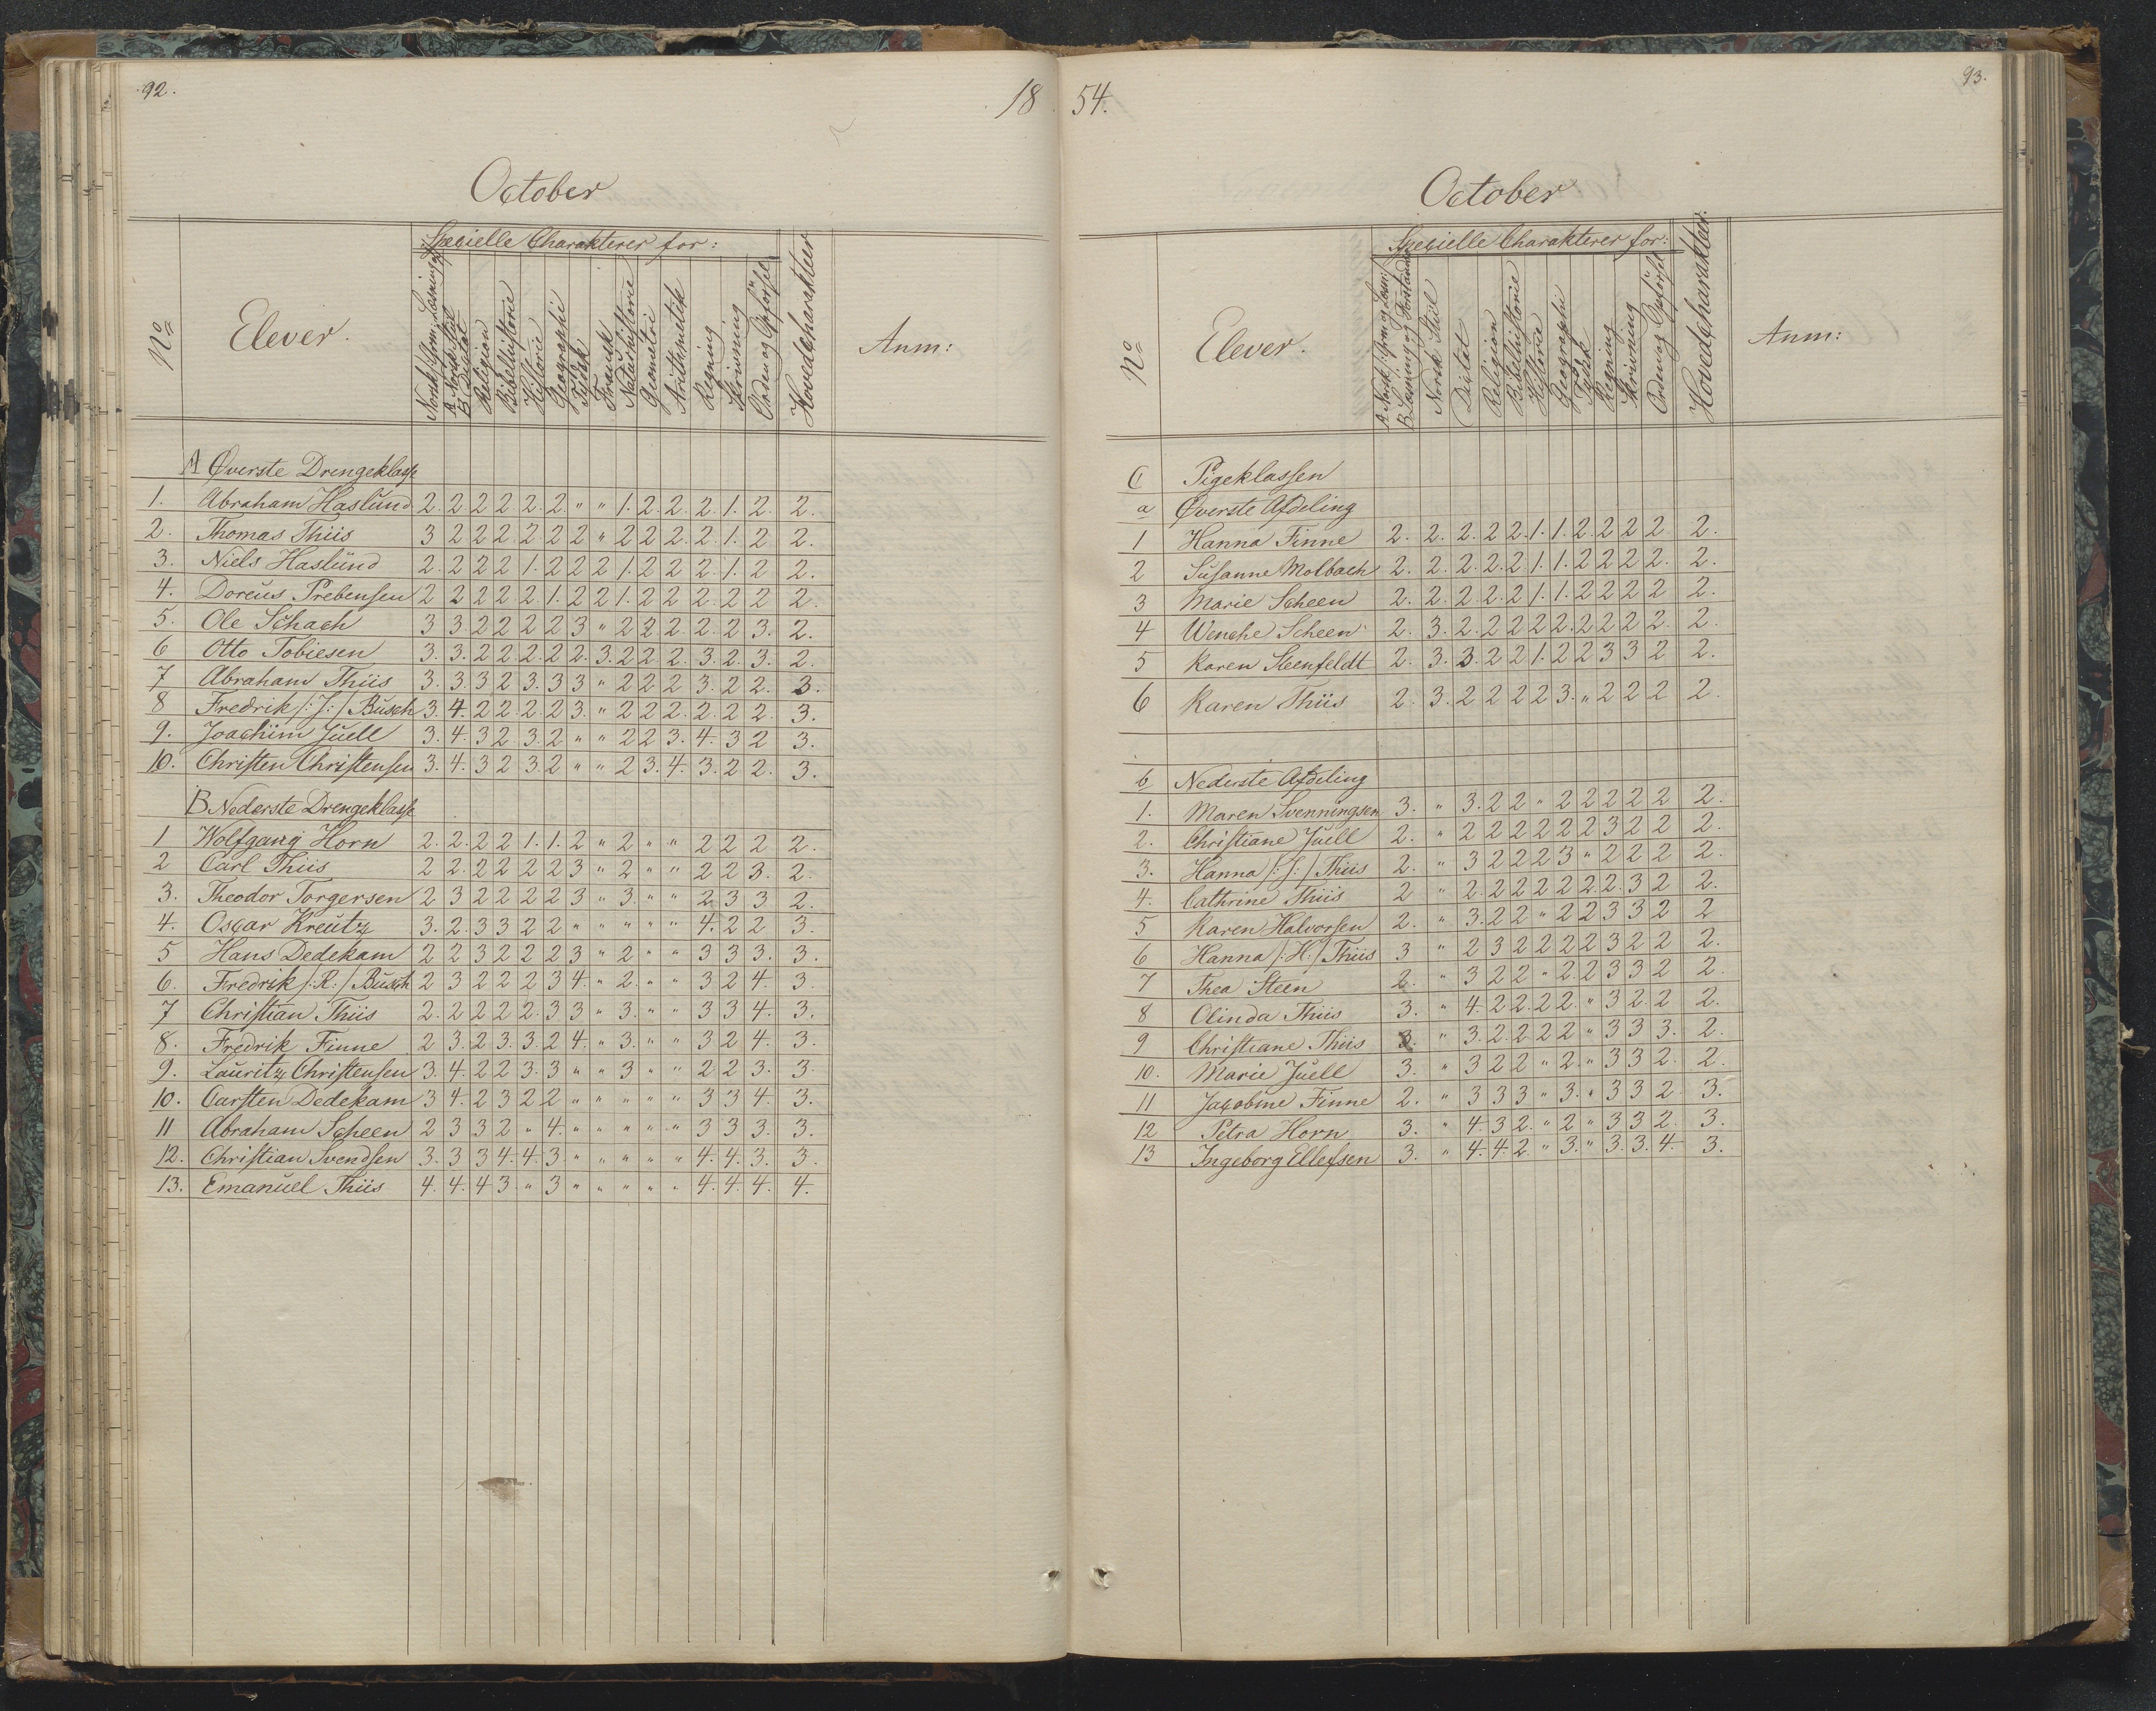 92.
18
October
Nº
Elever.
Specielle Charakterer for:
Norsk Gram: Læsning og
A Norsk Stiil
B Dictat
Religion
Bibelhistorie
Historie
Geographie
Tydsk
Fransk
Naturhistorie
Geometri
Arithmetik
Regning
Skrivning
Orden og Opførsel
Hovedcharakteer
Anm:
A Øverste Drengeklasse
1. Abraham Haslund 2. 2 2 2 2 2. 2. " " 1. 2. 2. 2 1. 2. 2.
2. Thomas Thiis 3 2 2 2. 2 2 2 " 2 2 2. 2. 1. 2 2.
3. Niels Haslund 2. 2 2 2 1. 2 2 2 1. 2 2 2. 1. 2 2.
4. Doreus Prebensen 2 2 2 2. 2. 1. 2 2 1. 2 2 2. 2 2 2.
5. Ole Schach 3 3 2 2 2 2 3 " 2 2 2. 2. 2 3. 2.
6 Otto Tobiesen 3. 3. 2 2 2. 2. 2. 3. 2 2 2. 3. 2. 3. 2.
7 Abraham Thiis 3. 3. 3 2 3. 3 3 " 2 2 2 3. 2 2. 3.
8 Fredrik /:J:/ Busch 3. 4. 2 2. 2. 2 3. " 2 2 2. 2. 2 2. 3.
9. Joachim Juell 3. 4. 3 2 3. 2 " " 2 2 3. 4. 3 2 3.
10. Christen Christensen 3. 4. 3 2 3. 2 " " 2 3. 4. 3. 2 2. 3.
B Nederste Drengeklasse
1 Wolfgang Horn 2. 2. 2 2 1. 1. 2 " 2 " " 2 2 2 2.
2 Carl Thiis 2 2. 2 2 2 2 3 " 2 " " 2 2 3. 2.
3. Theodor Torgersen 2 3 2 2 2 2 3 " 3. " " 2 3 3 2.
4. Oscar Kreutz 3. 2. 3 3 2 2 " " " " " 4. 2 2 3.
5 Hans Dedekam 2 2 3 2 2 2 3 " 2 " " 3 3 3. 3.
6. Fredrik /:R:/ Busch 2 3 2 2 2 3 4. " 2. " " 3 2 4. 3.
7 Christian Thiis 2. 2 2 2 2. 3 3 " 3. " " 3 3 4. 3.
8. Fredrik Finne 2 3. 2 3. 3. 2 4. " 3. " " 3 2 4. 3.
9. Lauritz Christensen 3. 4. 2 2 3. 3 " " 3 " " 2 2 3. 3.
10. Carsten Dedekam 3 4. 2 3 2 2 " " " " " 3 3 4. 3.
11 Abraham Scheen 2 3 3 2 " 4. " " " " " 3 3 3. 3.
12. Christian Svendsen 3. 3 3 4. 4. 3 " " " " " 4. 4. 3. 3.
13. Emanuel Thiis 4. 4. 4 3. " 3 " " " " " 4. 4. 4. 4.
54.
93.
October
Nº
Elever.
Specielle Charakterer for:
A Norsk Gram og Læsn:
B Læsning og Forstand
Norsk Stiil
Dictat
Religion
Bibelhistorie
Historie
Geographie
Tydsk
Regning
Skrivning
Orden og Opførsel
Hovedcharakteer.
Anm:
C Pigeklassen
a Øverste Afdeling
1 Hanna Finne 2. 2. 2. 2 2. 1. 1. 2. 2 2 2. 2.
2 Susanne Molbach 2. 2. 2. 2. 2. 1. 1. 2 2 2 2. 2.
3 Marie Scheen 2. 2. 2. 2. 2 1. 1. 2 2 2 2 2.
4 Wenche Scheen 2. 3. 2. 2 2 2 2. 2 2 2 2. 2.
5 Karen Steenfeldt 2. 3. 3. 2 2 1. 2 2 3 3 2 2.
6 Karen Thiis 2. 3. 2 2 2 2 3. " 2 2 2 2.
b Nederste Afdeling
1. Maren Svenningsen 3. " 3. 2 2 " 2 2 2 2 2 2.
2. Christiane Juell 2. " 2 2 2 2 2 2 3 2 2 2.
3. Hanna /:J:/ Thiis 2. " 3 2 2 2 3 " 2 2 2 2.
4. Cathrine Thiis 2 " 2. 2 2 2 2 2. 2. 3 2 2.
5 Karen Halvorsen 2. " 3. 2 2 " 2 2 3 3 2 2
6 Hanna /:H:/ Thiis 3 " 2 3 2 2 2 2 3 2 2 2.
7 Thea Steen 2. " 3 2 2 " 2. 2 3 3 2 2.
8 Olinda Thiis 3. " 4. 2 2. 2 2. " 3 2. 2 2.
9 Christiane Thiis 3. " 3. 2. 2 2 2 " 3 3 3. 2.
10. Marie Juell 3. " 3 2 2 " 2. " 3 3 2. 2.
11 Jacobine Finne 2. " 3 3 3 " 3. " 3 3 2. 3.
12 Petra Horn 3. " 4. 3 2. " 2 " 3 3 2. 3.
13 Ingeborg Ellefsen 3. " 4. 4. 2 " 3. " 3. 3. 4. 3.